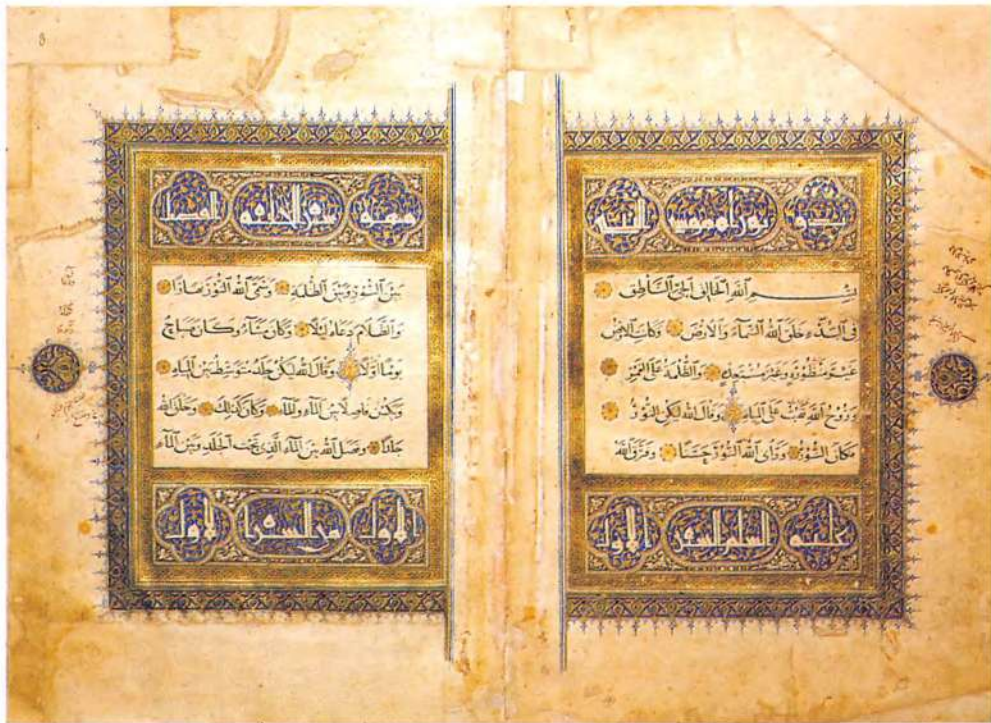 موسى
عليه السلم السفر الاول
بِسمِ اللهِ الخالق الحي الناطق
في البَدْء خلق الله السَّمآءَ والارضَ وكانت الارض
غير منظورة وغير مستعدة والظلمة على الغمر
وروح الله تهب على المياه وقال الله ليكن النور
فكان النور ورأى الله النور حَسَنًا وفرق الله
سفر الخليقه الفصل
بين النور وبين الظلمة وسمى الله النور نهارًا
والظلام دعاه ليلًا وكان مسآء وكان صباح
يومًا اولًا وقال الله ليكن جلد متوسط بين المياه
ويكون فاصلًا بين المآء والمآء وكان كذلك وخلق الله
جلدًا وفصل الله بين المآء الذي تحت الجلد وبين المآء
الاول من السفر الاول